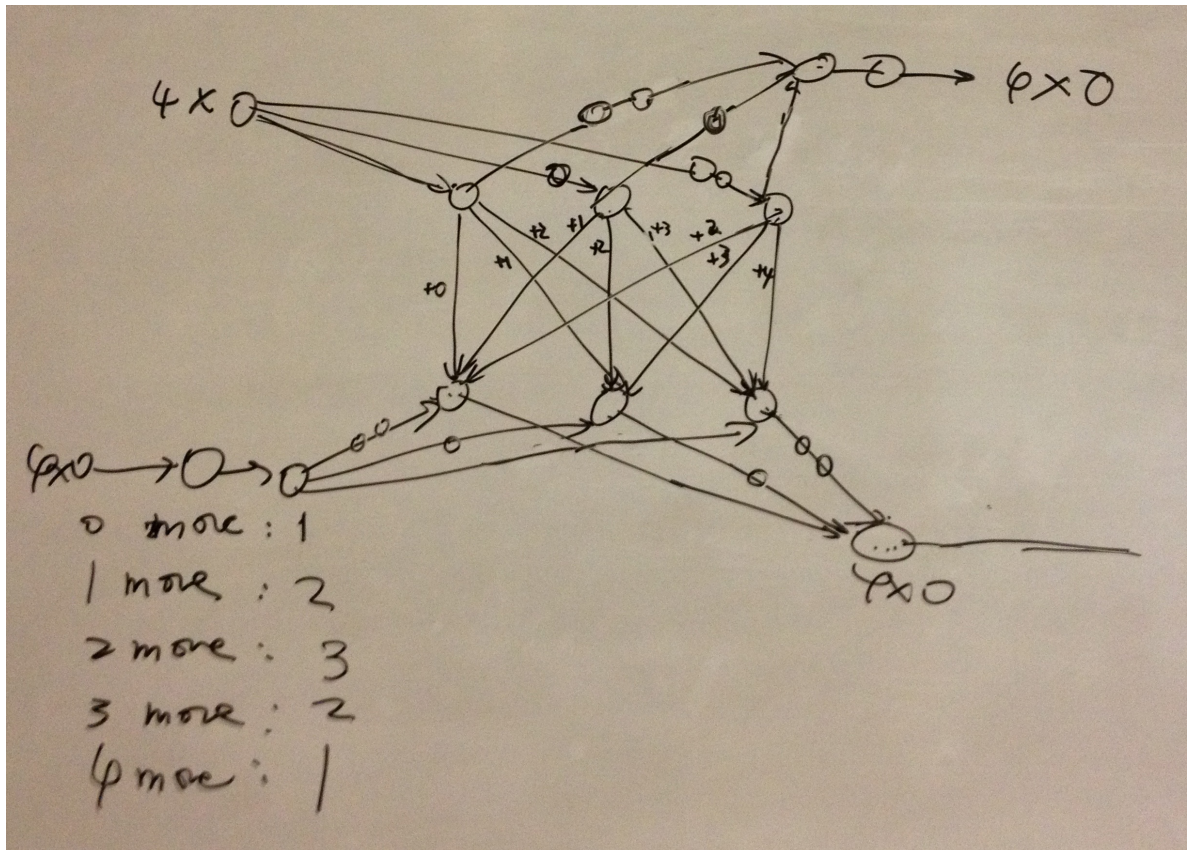 4 x
4x0
+2 +1 +3 +2
+1 +2 +3 +4
+0
4x0
4x0
0 more : 1
1 more : 2
2 more : 3
3 more : 2
4 more : 1